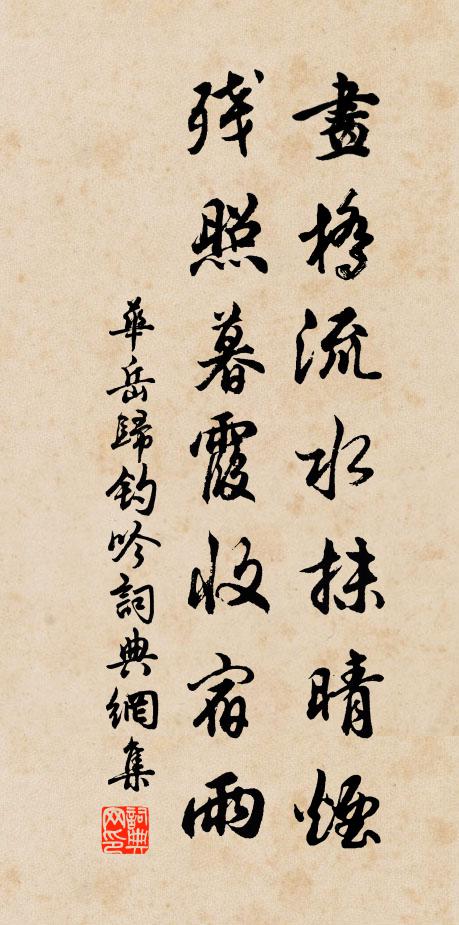 畫橋流水抹晴煙
残照暮霞收宿雨
華岳歸釣吟詞典網集
詞典網印